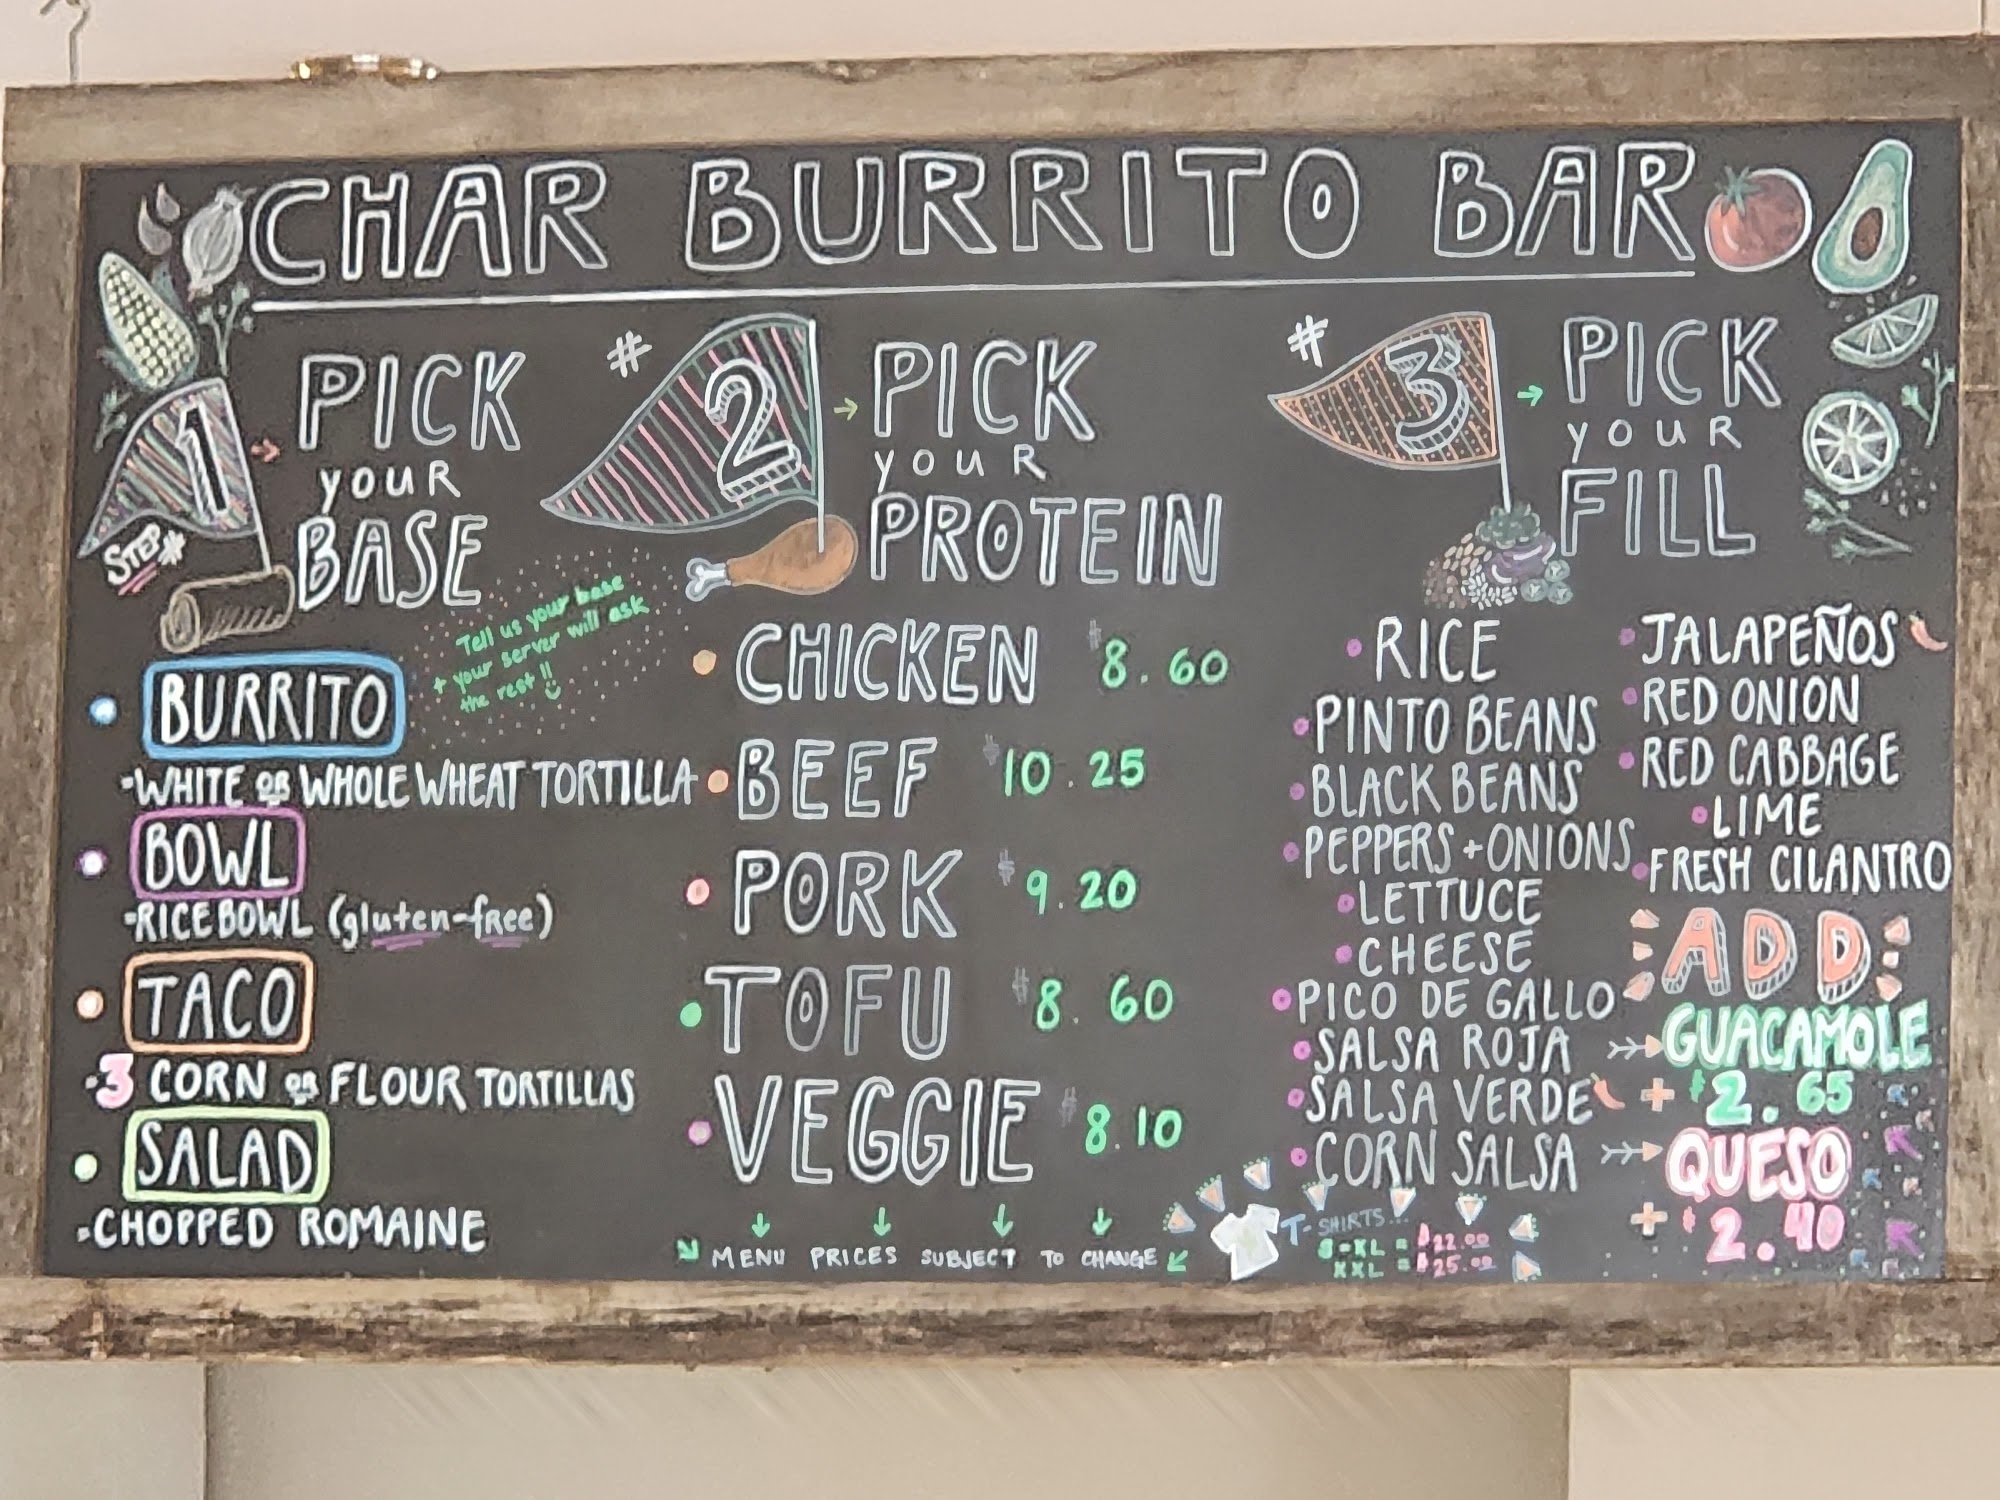 CHAR BURRITO BAR
STEP #
1 → PICK
YOUR
BASE
Tell us your base
+ your server will ask
the rest !!
BURRITO
-WHITE OR WHOLE WHEAT TORTILLA
BOWL
-RICE BOWL (gluten-free)
TACO
-3 CORN OR FLOUR TORTILLAS
SALAD
-CHOPPED ROMAINE
# 2 → PICK
YOUR
PROTEIN
CHICKEN $8.60
BEEF $10.25
PORK $9.20
TOFU $8.60
VEGGIE $8.10
MENU PRICES SUBJECT TO CHANGE
# 3 → PICK
YOUR
FILL
•RICE
•PINTO BEANS
•BLACK BEANS
•PEPPERS + ONIONS
•LETTUCE
•CHEESE
•PICO DE GALLO
•SALSA ROJA
•SALSA VERDE
•CORN SALSA
•JALAPEÑOS
•RED ONION
•RED CABBAGE
•LIME
•FRESH CILANTRO
ADD
GUACAMOLE
+ $2.65
QUESO
+ $2.40
T-SHIRTS...
S-XL = $22.00
XXL = $25.00